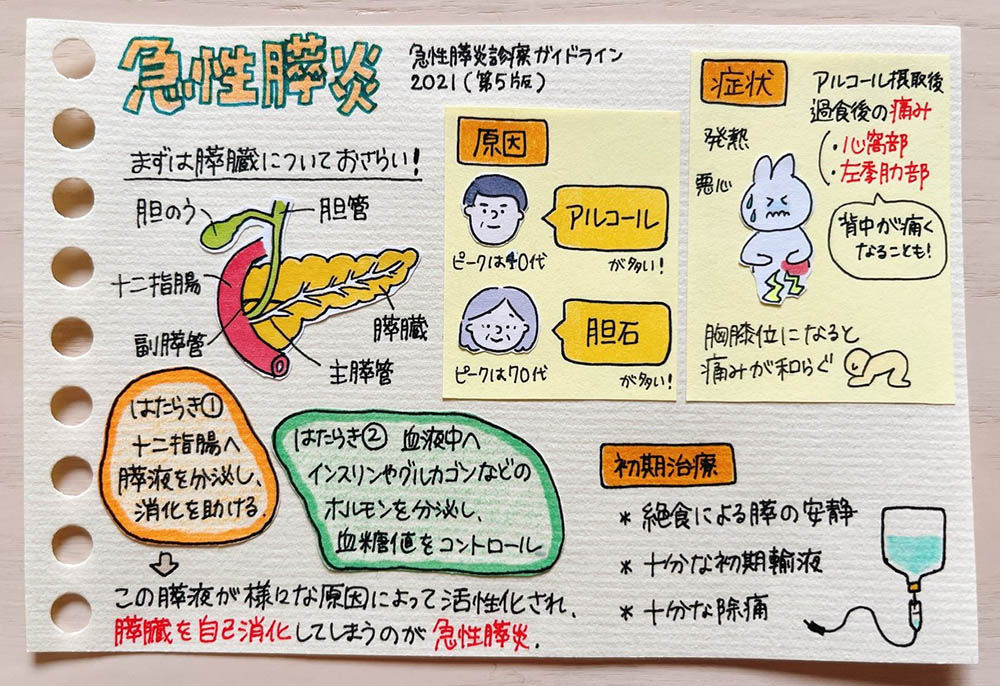 急性膵炎
急性膵炎診療ガイドライン
2021(第5版)
まずは膵臓についておさらい!
胆のう
胆管
十二指腸
膵臓
副膵管
主膵管
はたらき①
十二指腸へ
膵液を分泌し、
消化を助ける.
はたらき② 血液中へ
インスリンやグルカゴンなどの
ホルモンを分泌し、
血糖値をコントロール
この膵液が様々な原因によって活性化され、
膵臓を自己消化してしまうのが急性膵炎.
原因
アルコール
ピークは40代
が多い!
胆石
ピークは70代
が多い!
症状
アルコール摂取後
過食後の痛み
・心窩部
・左季肋部
発熱
悪心
背中が痛く
なることも!
胸膝位になると
痛みが和らぐ
初期治療
* 絶食による膵の安静
* 十分な初期輸液
* 十分な除痛